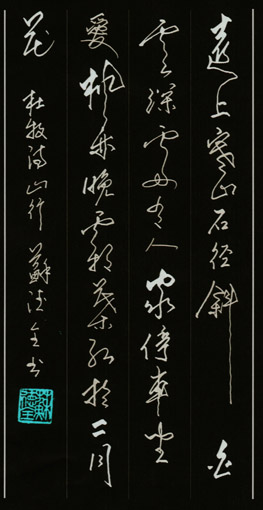 遠上寒山石径斜白
雲深處有人家停車坐
愛楓林晚霜葉紅於二月
花 杜牧詩山行 蘇德全书